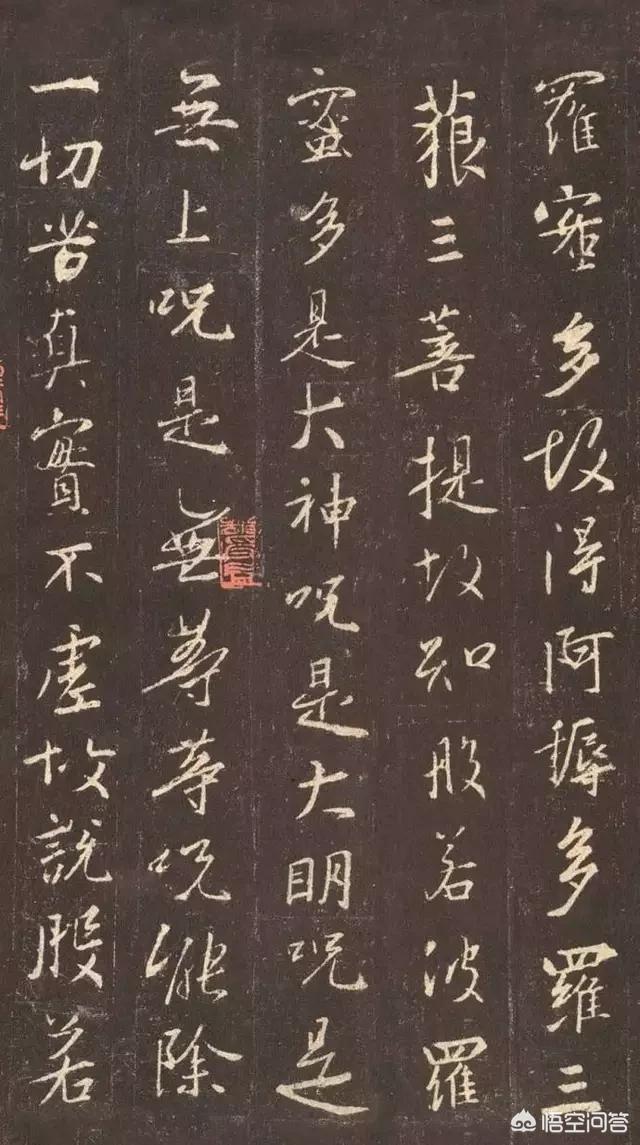 羅蜜多故得阿耨多羅三
藐三菩提故知般若波羅
蜜多是大神呪是大明呪是
無上呪是無等等呪能除
一切苦真實不虛故說般若
悟空问答